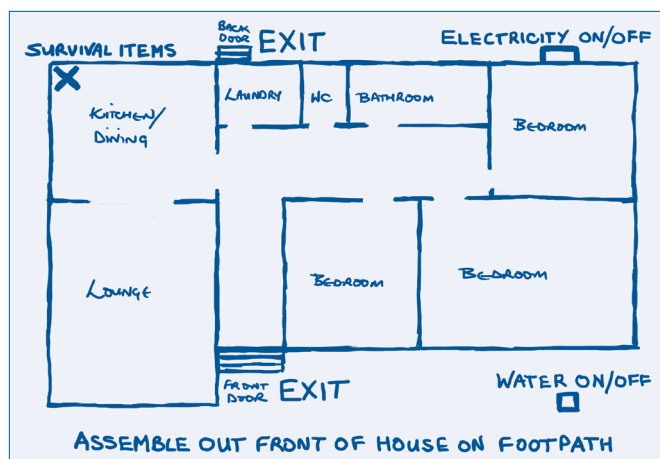 BACK
DOOR
EXIT
SURVIVAL ITEMS
ELECTRICITY ON/OFF
KITCHEN/
DINING
LAUNDRY
WC
BATHROOM
BEDROOM
LOUNGE
BEDROOM
BEDROOM
FRONT
DOOR
EXIT
WATER ON/OFF
ASSEMBLE OUT FRONT OF HOUSE ON FOOTPATH